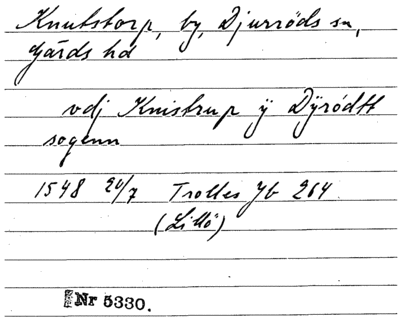 Knutstorp, by, Djurröds sn,
Gärds hd
vdj Knistrup y Dyrödtt
sogenn
1548 20/7 Trolles Jb 264
(Lillö)
Nr 5330.